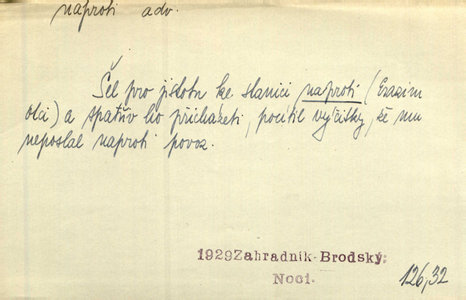 naproti adv.
Š.
Šel pro jistotu ke stanici naproti (Erazim
otci) a spatřiv ho přicházeti, pocítil výčitky, že mu
neposlal naproti povoz.
1929 Zahradník-Brodský:
Noci.
126,32